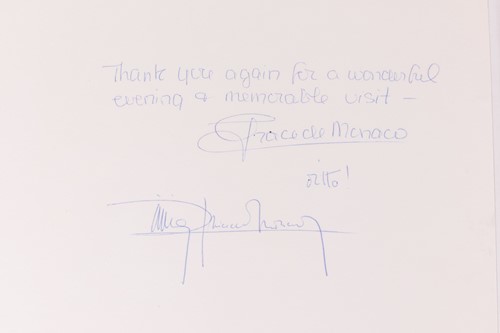 Thank you again for a wonderful
evening & memorable visit –
Grace de Monaco
ditto!